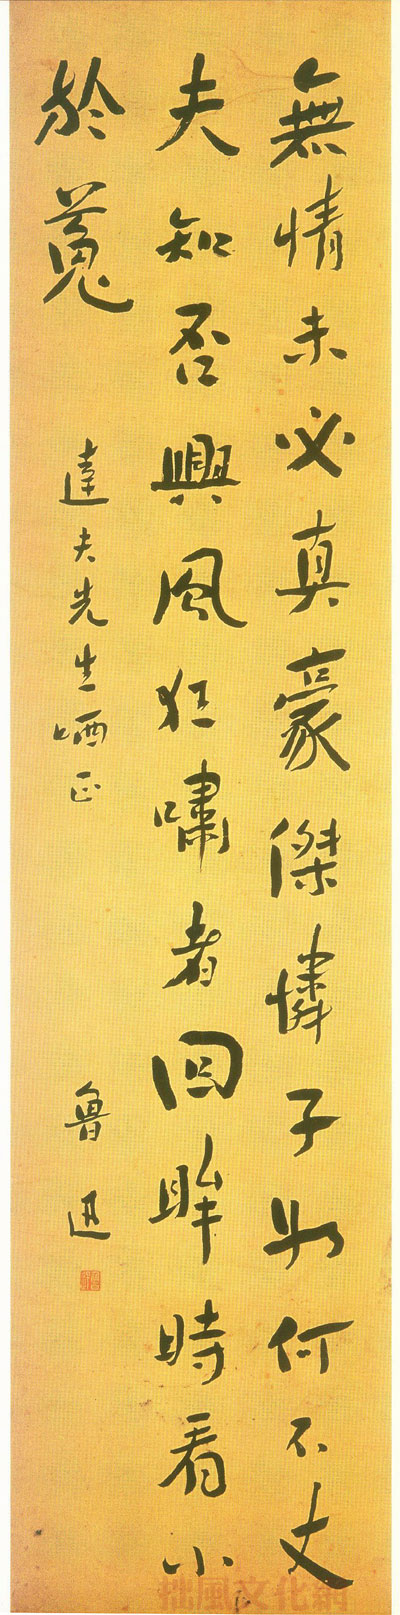 無情未必真豪傑憐子如何不丈
夫知否興風狂嘯者回眸時看小
於菟
達夫先生哂正
魯迅
拙風文化網